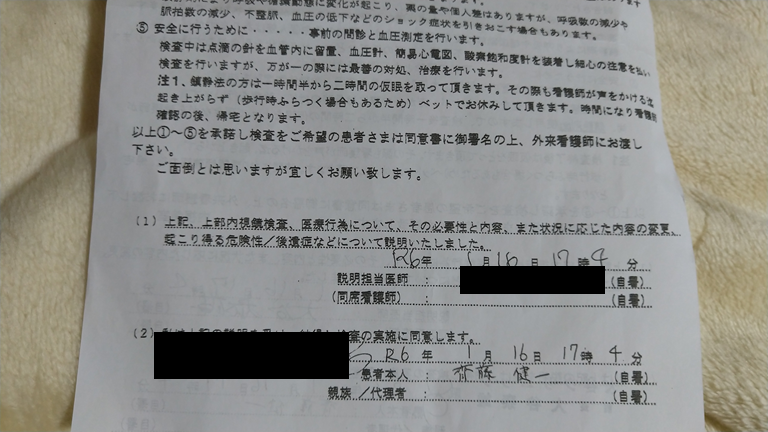 脈拍数の減少、不整脈、血圧の低下などのショック症状を引きおこす場合もあります。
⑤ 安全に行うために・・・・・事前の問診と血圧測定を行います。
検査中は点滴の針を血管内に留置、血圧計、簡易心電図、酸素飽和度計を装着し細心の注意を払い
検査を行いますが、万が一の際には最善の対処、治療を行います。
注1、鎮静法の方は一時間半から二時間の仮眠を取って頂きます。その際も看護師が声をかける迄
起き上がらず（歩行時ふらつく場合もあるため）ベットでお休みして頂きます。時間になり看護師
確認の後、帰宅となります。
以上①～⑤を承諾し検査をご希望の患者さまは同意書に御署名の上、外来看護師にお渡し
下さい。
ご面倒とは思いますが宜しくお願い致します。
(1) 上記、上部内視鏡検査、医療行為について、その必要性と内容、また状況に応じた内容の変更、
起こり得る危険性／後遺症などについて説明いたしました。
R6年 1月16日 17時4分
説明担当医師 ： (自署)
(同席看護師) ： (自署)
(2) 検査の実施に同意します。
R6年 1月16日 17時4分
患者本人 ： 齋藤 健一 (自署)
親族／代理者 ： (自署)